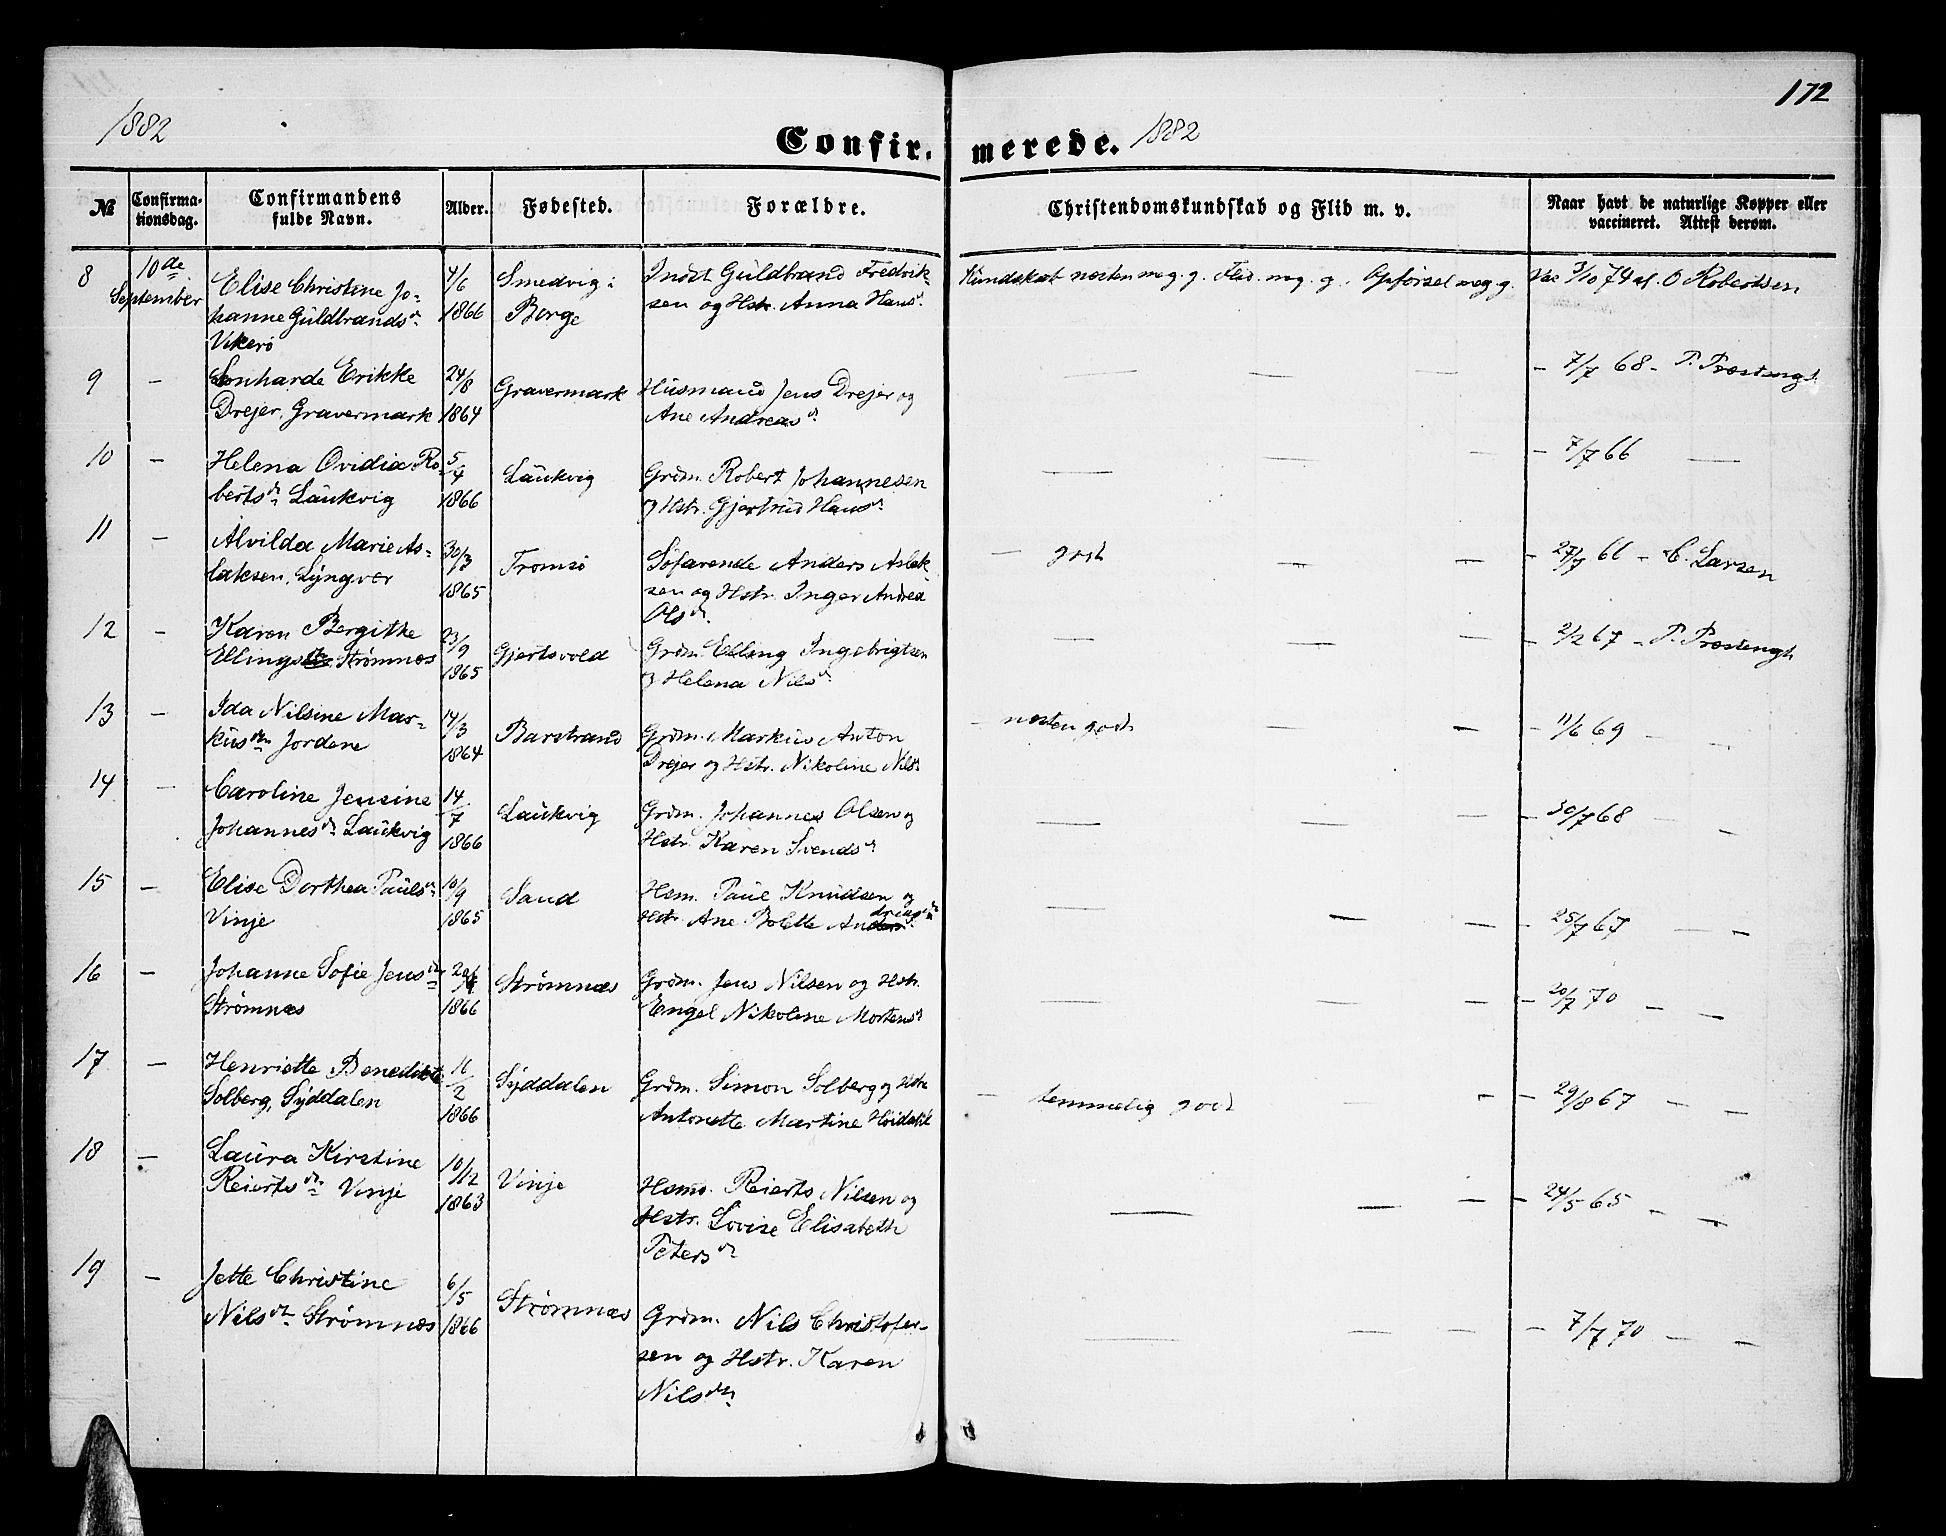 172
1882
Confir. merede. 1882
№ Confirmationsdag. Confirmandens fulde Navn. Alder. Fødested. Forældre. Christendomskundskab og Flid m. v. Naar havt de naturlige Kopper eller vaccineret. Attest derom.
8 10de Elise Christine Jo- 4/6 Smedvig i Indst Guldbrand Fredrik- Kundskab nesten meg. g. Flid meg. g. Opførsel meg g. Vac 3/10 74 af O Robertsen
September hanne Guldbrandsdr. 1866 Borge sen og Hstr. Anna Hansdr.
Vikerö
9 — Lonharde Erikke 24/8 Gravermark Husmand Jens Drejer og — — — — 7/7 68 — P. Præstengh
Drejer, Gravermark 1864 Ane Andreasdr.
10 — Helena Ovidia Ro- 5/4 Laukvig Grdm. Robert Johannesen — — — — 7/7 66 —
bertsdr. Laukvig 1866 og Hstr. Gjertrud Hansdr.
11 — Alvilda Marie As- 30/3 Tromsö Söfarende Anders Aslek- — godt — — — 27/9 66 — C. Larsen
laksen, Lyngvær 1865 sen og Hstr. Inger Andrea
Olsdr.
12 — Karen Bergithe 23/9 Gjertsvold Grdm. Elling Ingebrigtsen — — — — 2/2 67 — P. Præstengh
Ellings Strømnæs 1865 og Helena Nilsdr.
13 — Ida Nilsine Mar- 14/3 Barstrand Grdm. Markus Anton — nesten godt — — — 11/6 69 — —
kusdtr. Jordene 1864 Drejer og Hstr. Nikoline Nilsdr.
14 — Caroline Jensine 14/7 Laukvig Grdm. Johannes Olsen og — — — — 30/7 68 — —
Johannesdr. Laukvig 1866 Hstr. Karen Svendsdr.
15 — Elise Dorthea Paulsdr. 10/9 Sand Hsm. Paul Knudsen og — — — 25/7 67 — —
Vinje 1865 Hstr. Ane Bolette Andreasdr.
16 — Johanne Sofie Jensdr. Strømnæs Grdm. Jens Nilsen og Hstr. — — — — 20/7 70 — —
Strømnæs 1866 Engel Nikoline Mortensdr.
17 — Henriette Benedikte 16/2 Syddalen Grdm. Simon Solberg og Hstr. — temmelig godt — — — 29/8 67 — —
Solberg, Syddalen 1866 Antonette Martine
18 — Laura Kirstine 10/12 Vinje Hsmd. Reierts Nilsen og — — — — 24/5 65 — —
Reiertsdr. Vinje 1863 Hstr. Lovise Elisabeth
Petersdr.
19 — Jette Christine 6/5 Strømnæs Grdm. Nils Christofer- — — — — 7/7 70 — —
Nilsdr. Strømnæs 1866 sen og Hstr. Karen
Nilsdtr.